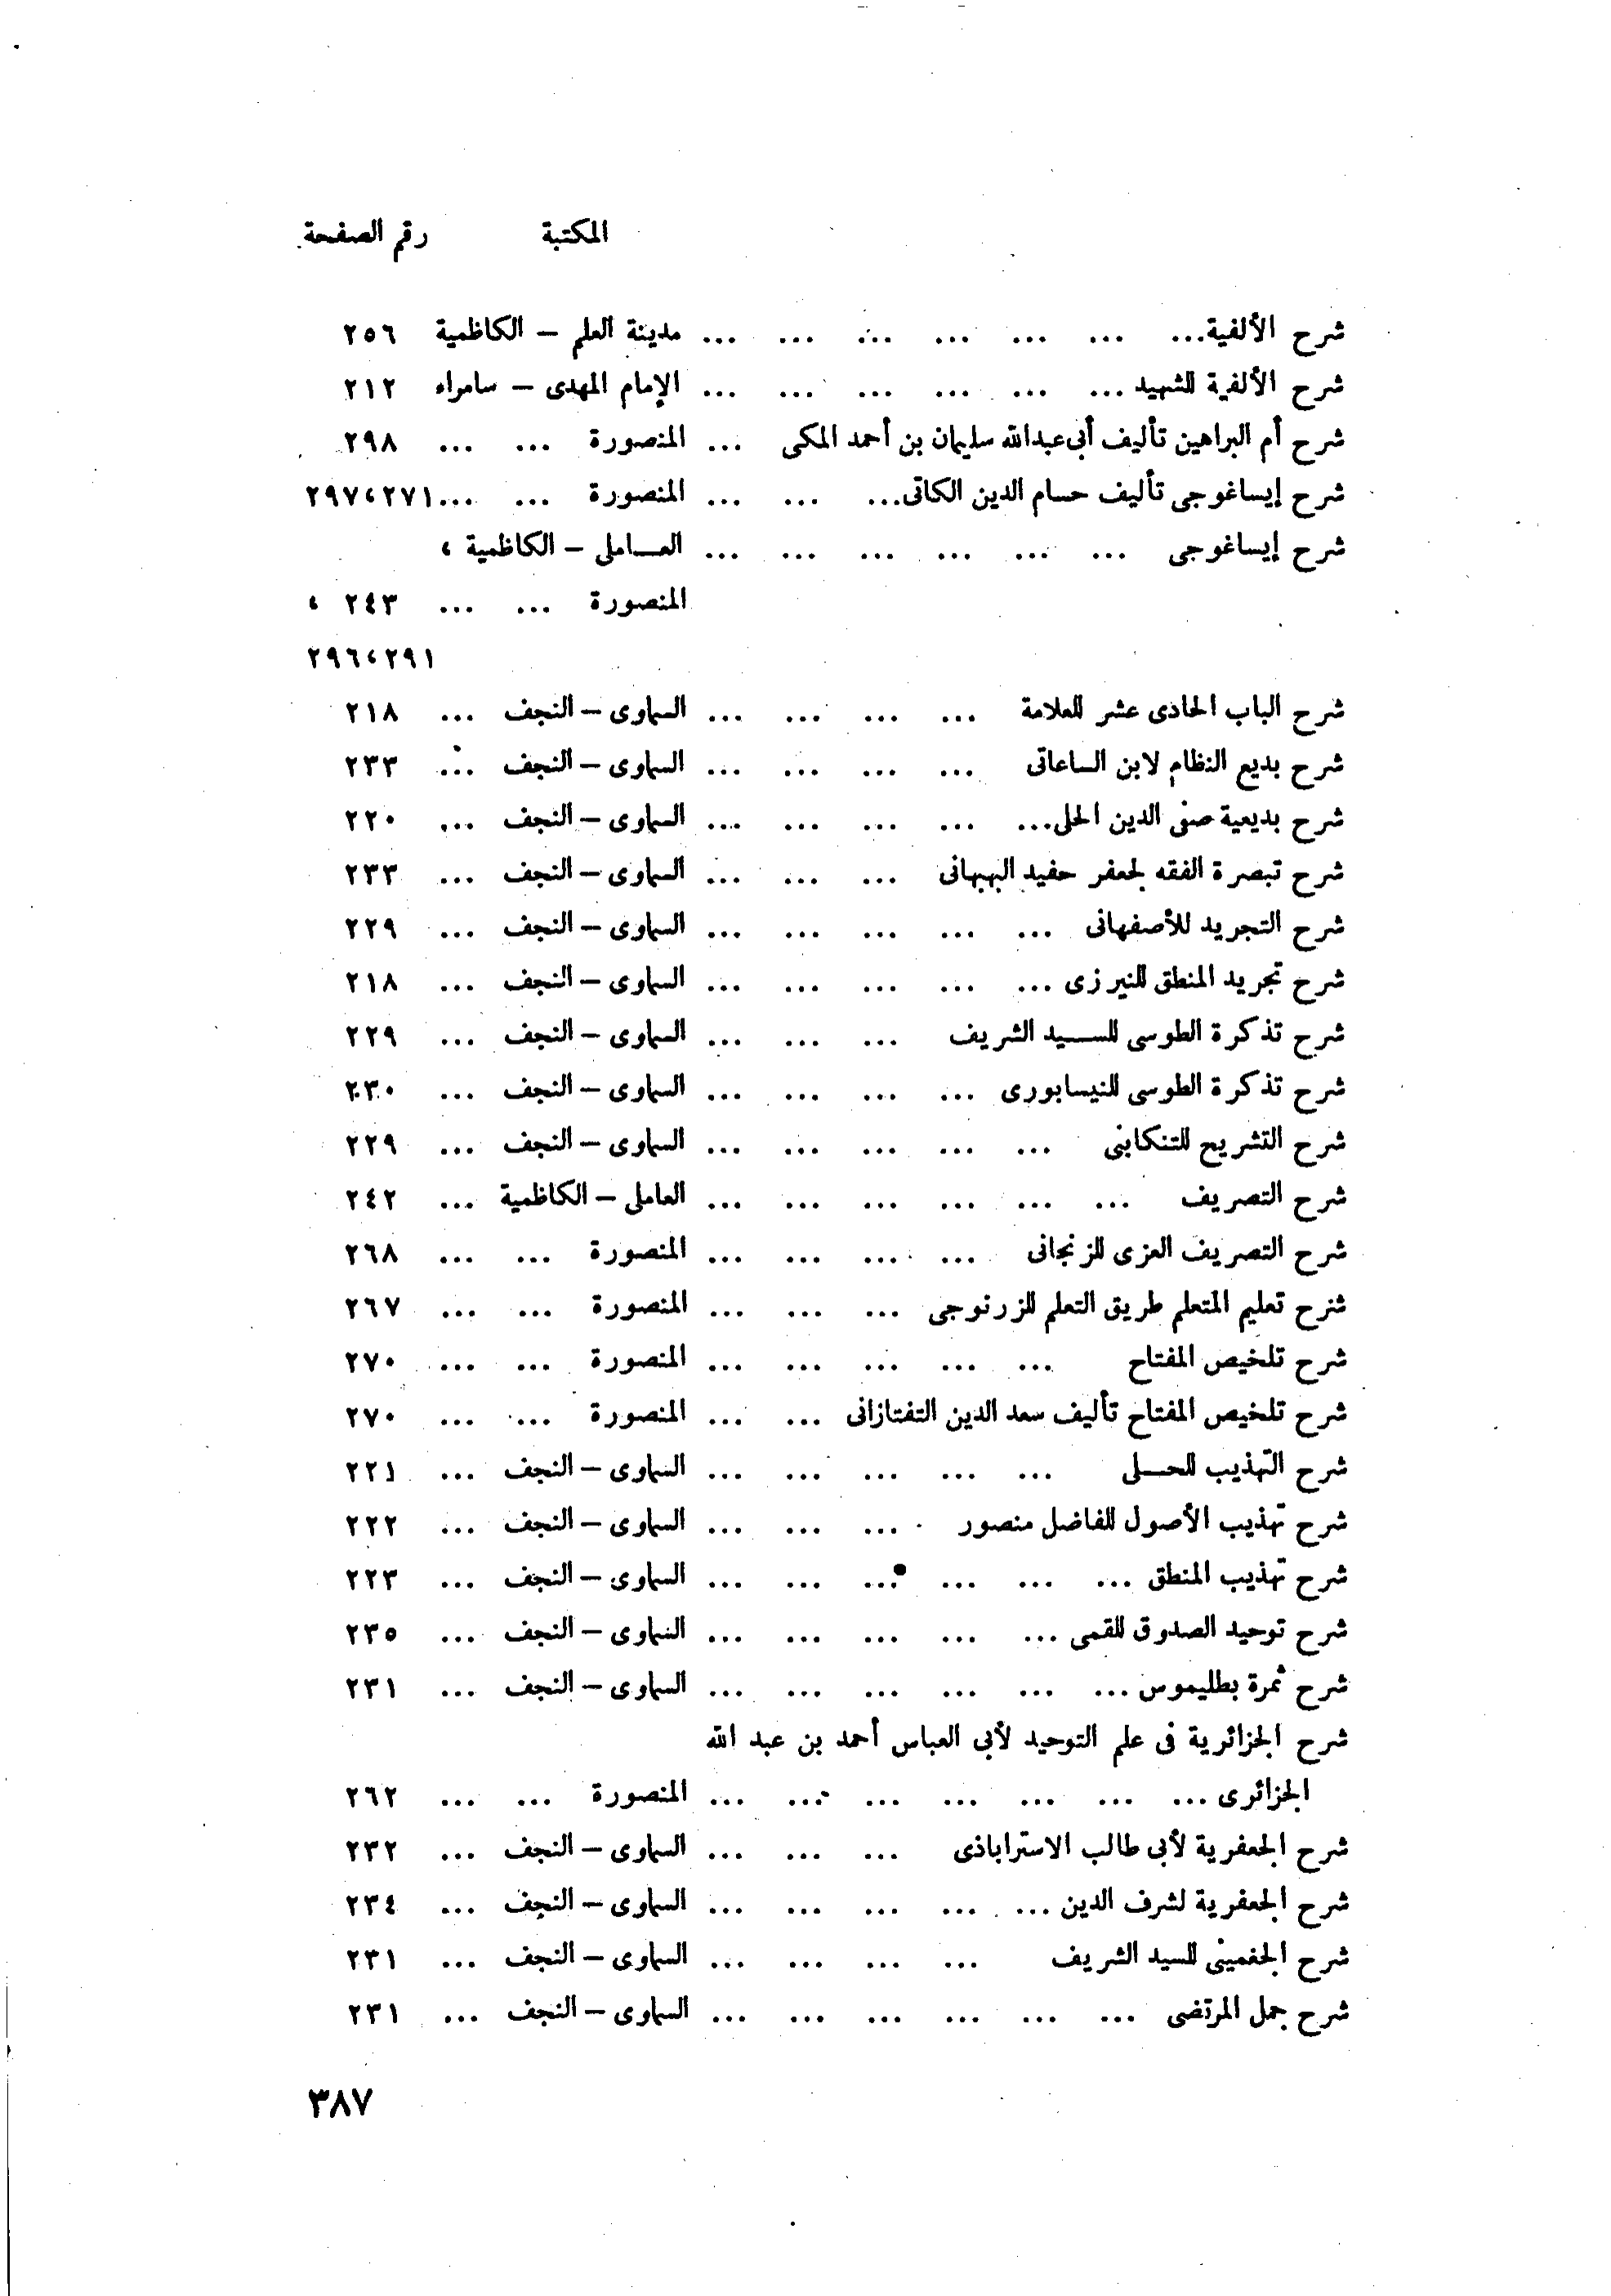 المكتبة رقم الصفحة
شرح الألفية... ... ... ... ... ... ... مدينة العلم – الكاظمية ٢٥٦
شرح الألفية للشهيد ... ... ... ... ... ... الإمام المهدى – سامراء ٢١٢
شرح أم البراهين تأليف أبى عبدالله سليمان بن أحمد المكى ... المنصورة ... ... ٢٩٨
شرح إيساغوجى تأليف حسام الدين الكاتى... ... ... المنصورة ... ... ٢٧١ ، ٢٩٧
شرح إيساغوجى ... ... ... ... ... ... العــاملى – الكاظمية ،
المنصورة ... ... ٢٤٣ ،
٢٩١ ، ٢٩٦
شرح الباب الحادى عشر للعلامة ... ... ... ... السماوى – النجف ... ٢١٨
شرح بديع النظام لابن الساعاتى ... ... ... ... السماوى – النجف ... ٢٣٣
شرح بديعية صفى الدين الحلى... ... ... ... ... السماوى – النجف ... ٢٢٠
شرح تبصرة الفقه لجعفر حفيد البهبهانى ... ... ... السماوى – النجف ... ٢٣٣
شرح التجريد للأصفهانى ... ... ... ... ... السماوى – النجف ... ٢٢٩
شرح تجريد المنطق للنيرزى ... ... ... ... ... السماوى – النجف ... ٢١٨
شرح تذكرة الطوسى للســيد الشريف ... ... ... السماوى – النجف ... ٢٢٩
شرح تذكرة الطوسى للنيسابورى ... ... ... ... السماوى – النجف ... ٢٣٠
شرح التشريح للتنكابنى ... ... ... ... ... السماوى – النجف ... ٢٢٩
شرح التصريف ... ... ... ... ... ... العاملى – الكاظمية ... ٢٤٢
شرح التصريف العزى للزنجانى ... ... ... ... المنصورة ... ... ٢٦٨
شرح تعليم المتعلم طريق التعلم للزرنوجى ... ... ... المنصورة ... ... ٢٦٧
شرح تلخيص المفتاح ... ... ... ... ... المنصورة ... ... ٢٧٠
شرح تلخيص المفتاح تأليف سعد الدين التفتازانى ... ... المنصورة ... ... ٢٧٠
شرح التهذيب للحــلى ... ... ... ... ... السماوى – النجف ... ٢٢١
شرح تهذيب الأصول للفاضل منصور ... ... ... السماوى – النجف ... ٢٢٢
شرح تهذيب المنطق ... ... ... ... ... ... السماوى – النجف ... ٢٢٣
شرح توحيد الصدوق للقمى ... ... ... ... ... السماوى – النجف ... ٢٣٥
شرح ثمرة بطليموس ... ... ... ... ... ... السماوى – النجف ... ٢٣١
شرح الجزائرية فى علم التوحيد لأبى العباس أحمد بن عبد الله
الجزائرى ... ... ... ... ... ... ... المنصورة ... ... ٢٦٢
شرح الجعفرية لأبى طالب الاستراباذى ... ... ... السماوى – النجف ... ٢٣٢
شرح الجعفرية لشرف الدين ... ... ... ... ... السماوى – النجف ... ٢٣٤
شرح الجغمينى للسيد الشريف ... ... ... ... السماوى – النجف ... ٢٣١
شرح جمل المرتضى ... ... ... ... ... ... السماوى – النجف ... ٢٣١
٣٨٧